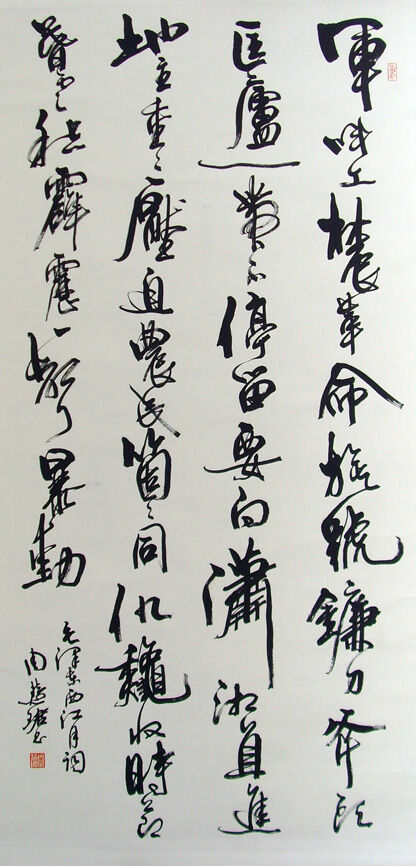 軍叫工農革命旗號鐮刀斧頭
匡廬一帶不停留要向瀟湘直進
地主重〻壓迫農民箇〻同仇龝收時節
暮雲愁霹靂一聲暴動
毛澤東西江月詞
周慧珺書